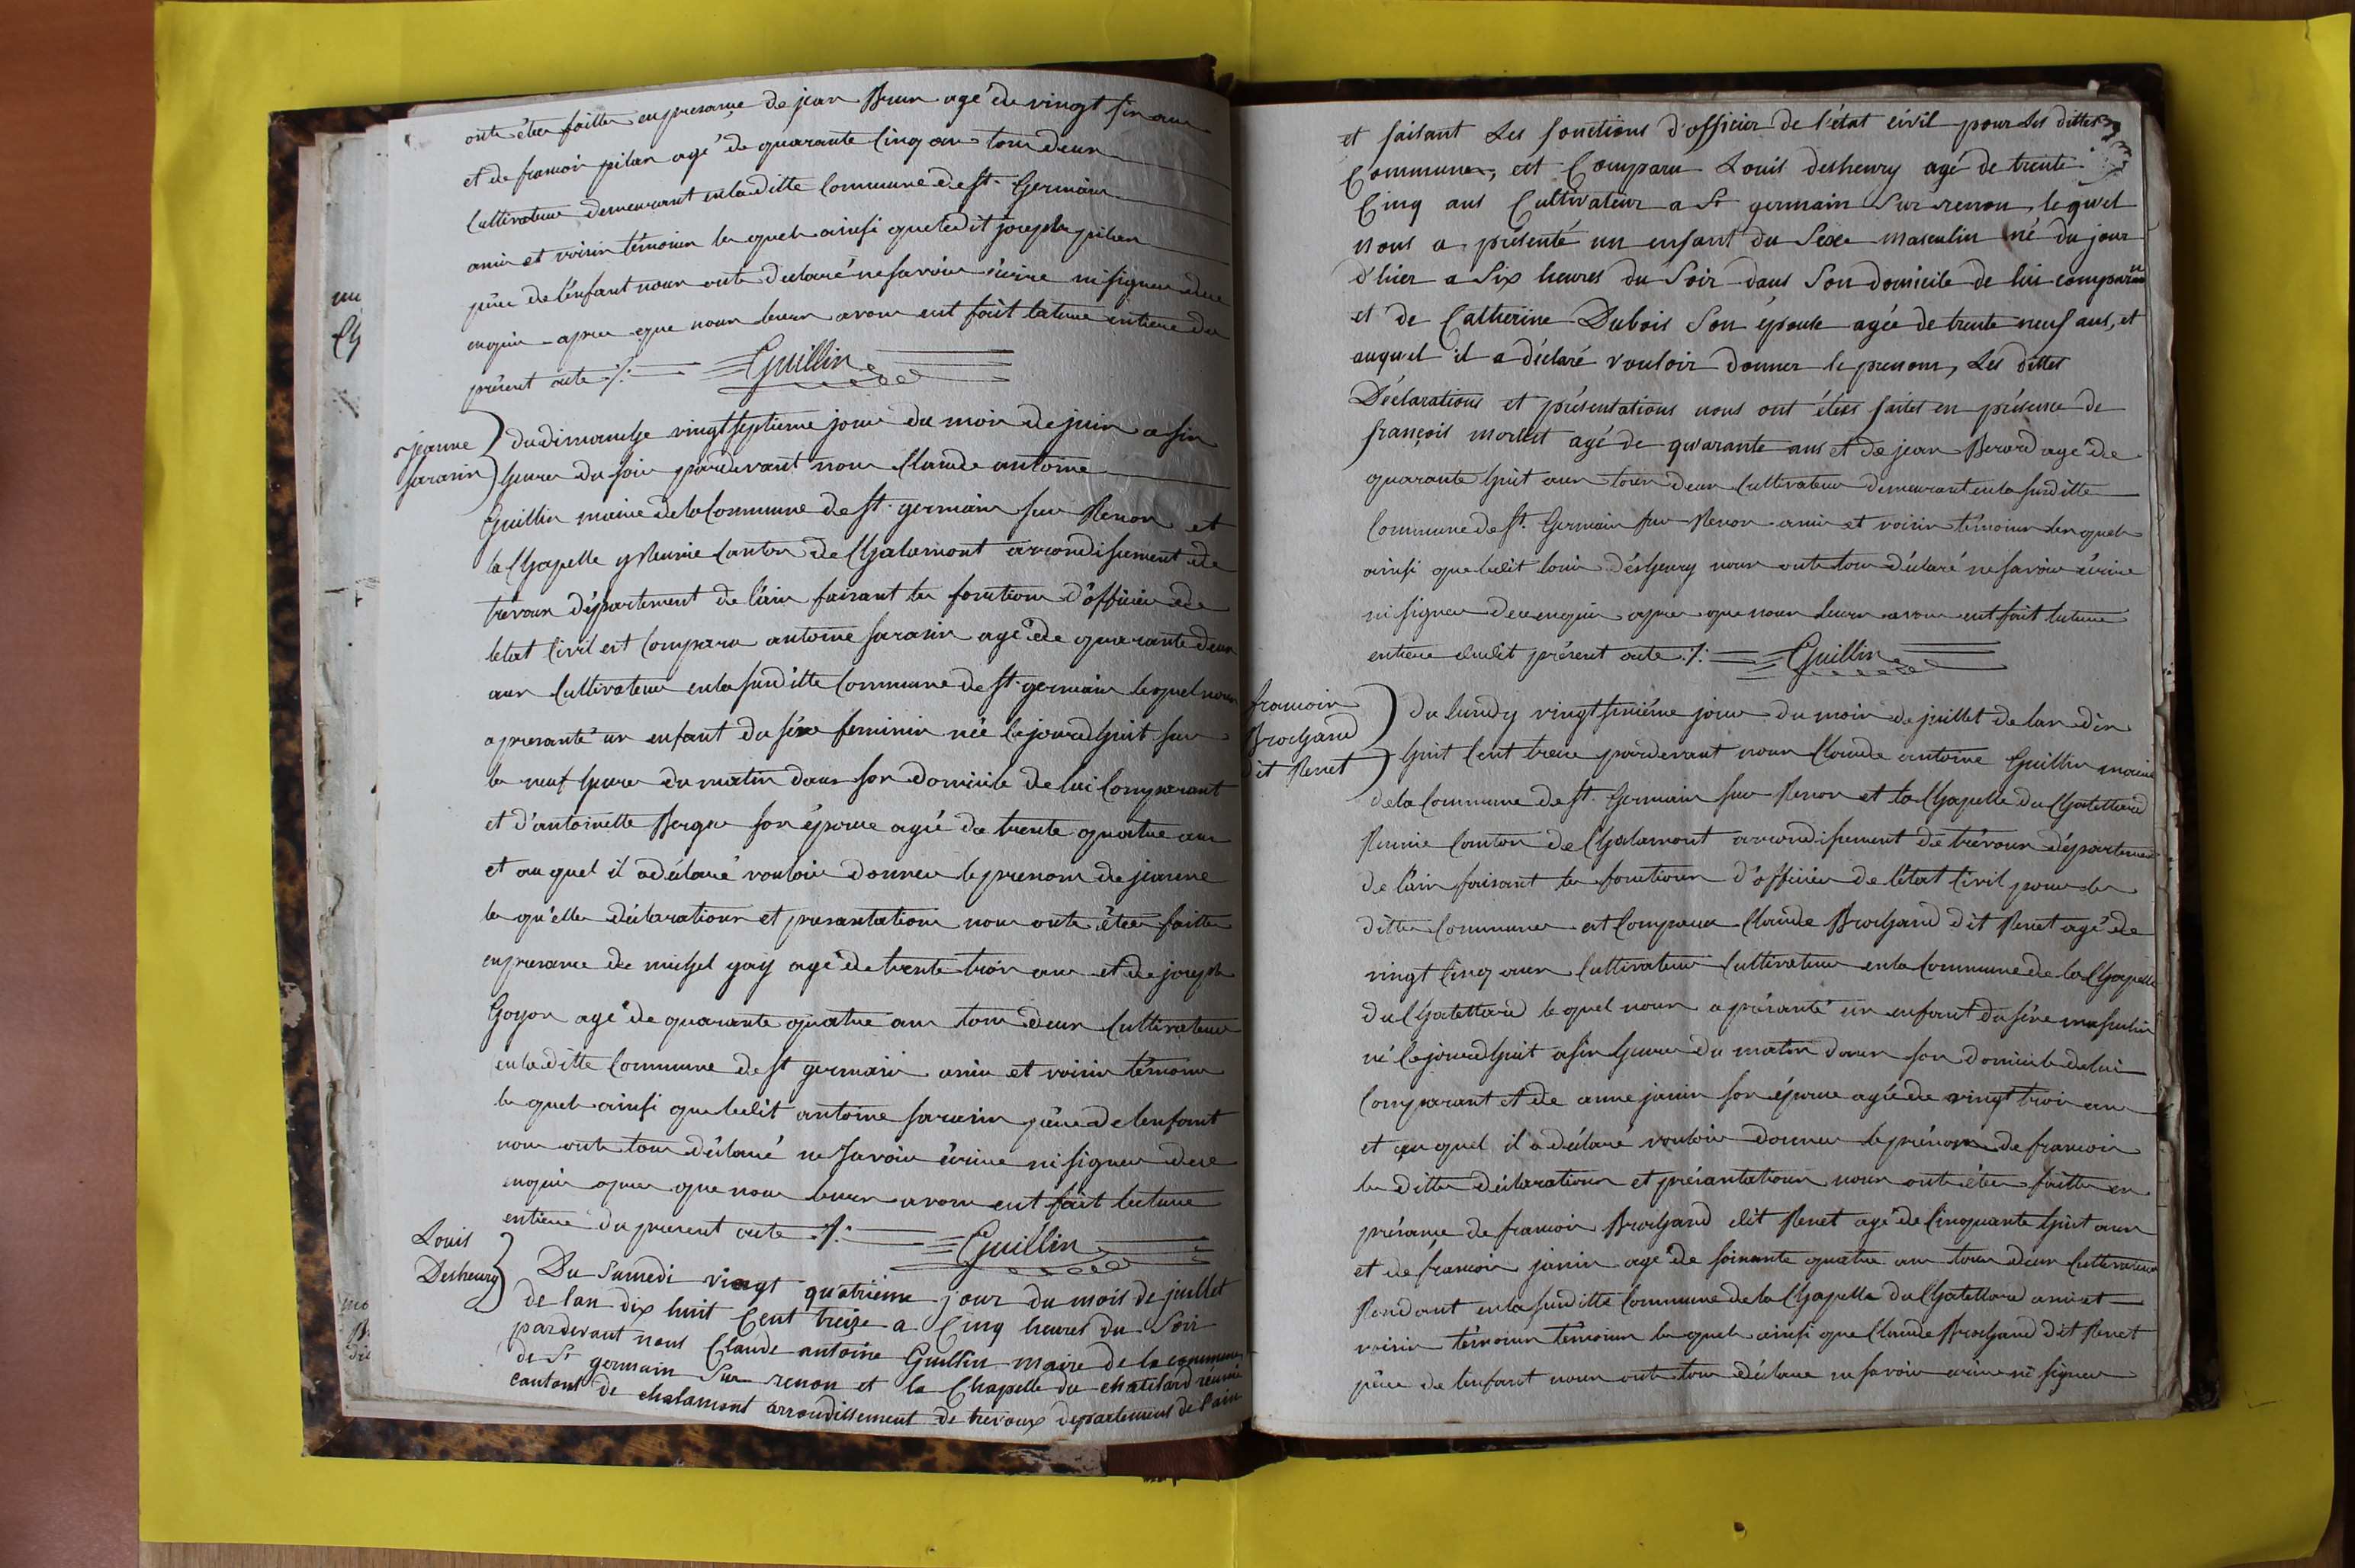 onts étée faitte en presance de jean Brun agé de vingt six ans
et de francois pilon agé de quarante Cinq ans tous deux
Cultivateur demeurant en la ditte Commune de St. Germain
amis et voisin témoins les quels ainsi que le dit joseph
père de l'enfant nous onts declaré ne savoir écrire ni signer de ce
enquis apres que nous leurs avons eut fait lecture entiere du
présent acte ./. Guillin
jeanne
sarasin
du dimanche vingt septieme jour du mois de juin a six
heures du soir pardevant nous Claude antoine
Guillin maire de la Commune de St. germain sur Renon et
la Chapelle y Reunie Canton de Chalamont arrondissement de
trévoux département de l'ain faisant les fonctions d'officier de
letat Civil est Comparu antoine sarasin agé de quarante deux
ans Cultivateur en la susditte Commune de St. germain lequel nous
a presanté un enfant du séxe feminin née Cejourdhuit sur
les neuf heures du matin dans son domicile de lui Comparant
et d'antoinette Bergne son épouse agée de trente quatre ans
et auquel il a déclaré vouloir donner le prenom de jeanne
les qu'elles déclarations et presantations nous onts étée faitte
en presance de michel gay agé de trente trois ans et de joseph
Goyon agé de quarante quatre ans tous deux Cultivateur
en la ditte Commune de St germain amis et voisin témoins
les quels ainsi que ledit antoine sarasin père de lenfant
nous onts tous déclaré ne savoir écrire ni signer de ce
enquis apres que nous leurs avons eut fait lecture
entiere du present acte ./. Guillin
Louis
Desheury
Du Samedi vingt quatrième jour du mois de juillet
de l'an dix huit Cent treize a Cinq heures du Soir
pardevant nous Claude antoine Guillin maire de la commune
de St germain Sur renon et la Chapelle du chatelard réunie
canton de chalamont arrondissement de trevoux departement de l'ain
et faisant Les fonctions d'officier de l'état civil pour Les dittes
Communes, est Comparu Louis desheury agé de trente
Cinq ans Cultivateur a St germain Sur renon, lequel
nous a présenté un enfant du Sexe masculin né du jour
d'hier a Six heures du Soir dans Son domicile de lui comparant
et de Catherine Dubois Son épouse agée de trente neuf ans, et
auquel il a déclaré vouloir donner le prenom, Les dittes
Déclarations et présentations nous ont étées faites en présence de
françois morlet agé de quarante ans et de jean Berard agé de
quarante huit ans tous deux Cultivateur demeurant en la susditte
Commune de St. Germain sur Renon amis et voisin témoins lesquels
ainsi que ledit louis désheury nous onts tous déclaré ne savoir écrire
ni signer de ce enquis apres que nous leurs avons eut fait lecture
entiere dudit présent acte ./. Guillin
francois
Brochand
dit Renet
du lundy vingt sixiéme jour du mois de juillet de lan dix
huit Cent treize pardevant nous Claude antoine Guillin maire
de la Commune de St. Germain sur Renon et la Chapelle du Chatellard
Reunie Canton de Chalamont arrondissement de trévoux département
de l'ain faisant les fonctions d'officier de l'état Civil pour les
dittes Communes est Comparu Claude Brochand dit Renet agé de
vingt Cinq ans Cultivateur Cultivateur en la Commune de la Chapelle
du Chatellard le quel nous a présanté un enfant du séxe masculin
né Cejourdhuit a six heures du matin dans son domicile de lui
Comparant et de anne janin son épouse agée de vingt trois ans
et au quel il a déclaré vouloir donner le prénom de francois
les dittes déclarations et présantations nous onts étée faitte en
présance de francois Brochand dit Renet agé de Cinquante huit ans
et de francois janin agé de soixante quatre ans tous deux Cultivateur
Residant en la susditte Commune de la Chapelle du Chatellard amis et
voisin témoins témoins les quels ainsi que Claude Brochand dit Renet
père de lenfant nous onts tous déclaré ne savoir écrire ni signer